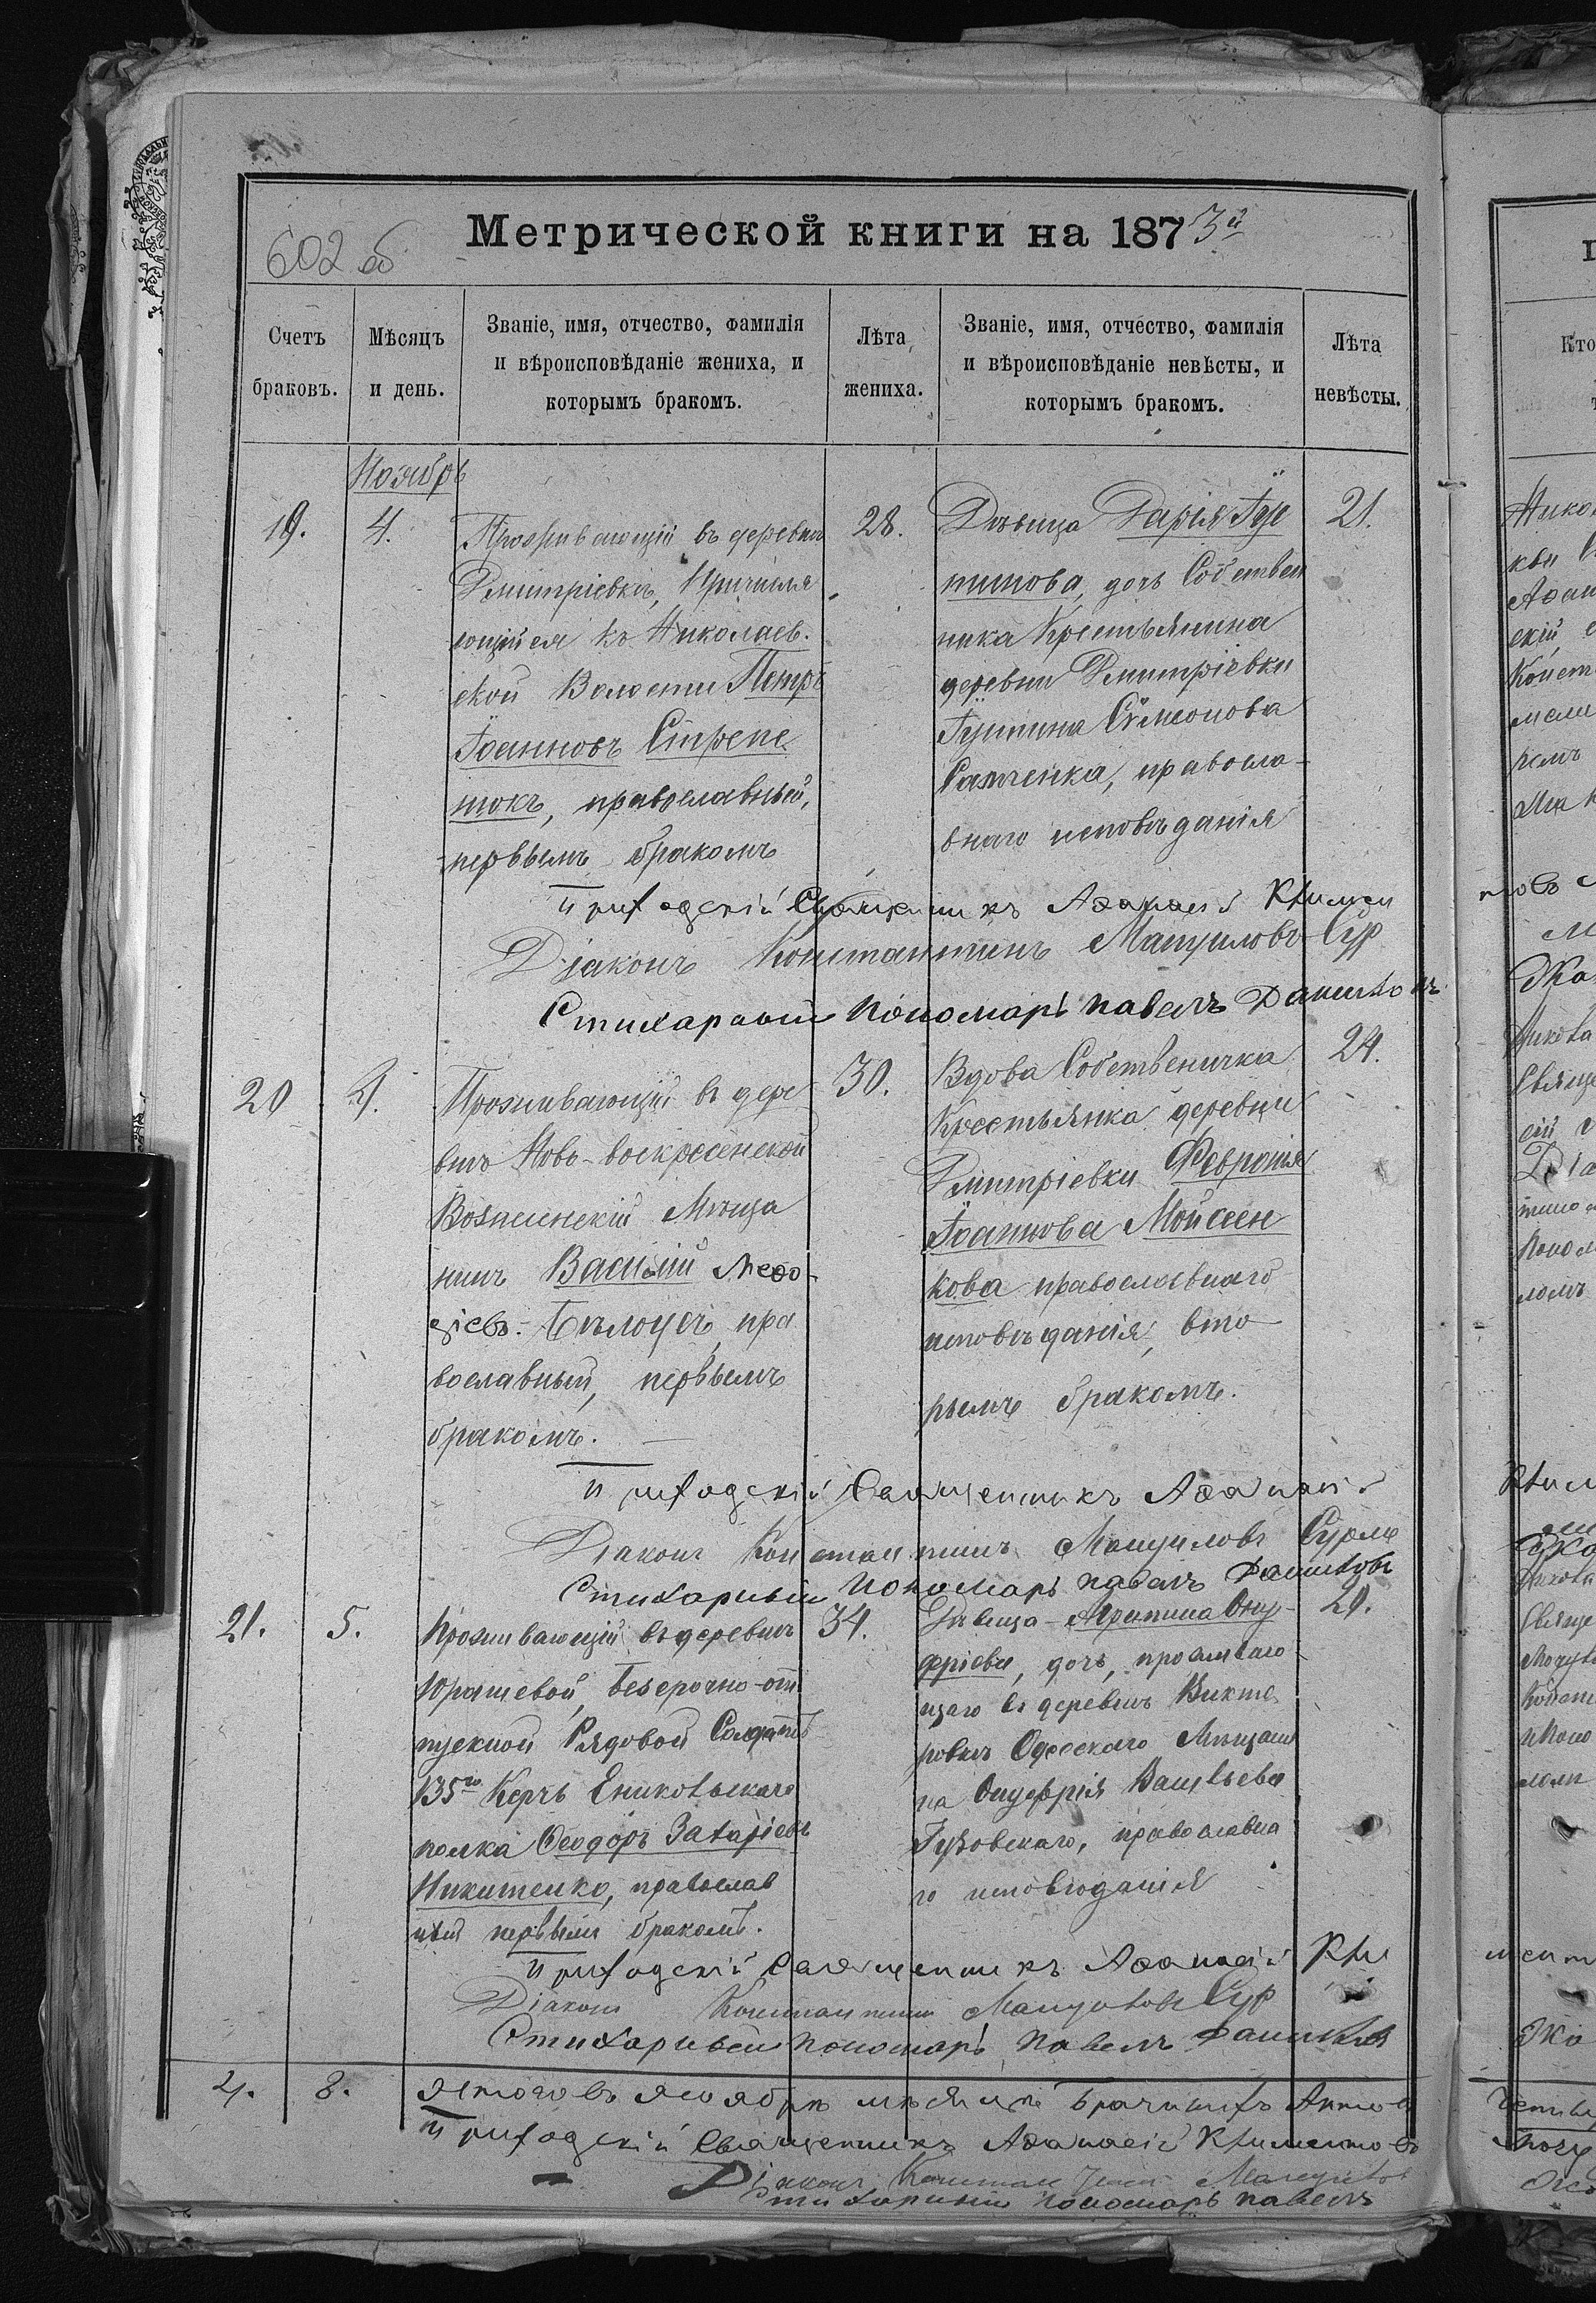 602 об
Метрической книги на 1873й
Счетъ браковъ.
Мѣсяцъ и день.
Званіе, имя, отчество, фамилія и вѣроисповѣданіе жениха, и которымъ бракомъ.
Лѣта жениха.
Званіе, имя, отчество, фамилія и вѣроисповѣданіе невѣсты, и которымъ бракомъ.
Лѣта невѣсты.
Ноябрь
19.
4.
Проживающій въ деревни
Дмитріевкѣ, Причисля
ющійся къ Николаев-
ской Волости Петръ
Іоанновъ Стрепе
токъ, православный,
первымъ бракомъ
28.
Дѣвица Дарія Іус
тинова, дочь Собствен
ника Крестьянина
деревни Дмитріевки
Іустина Сѵмеонова
православ-
внаго исповѣданія
21.
Приходскій Священникъ Аѳанасій Климен
Діаконъ Константинъ Мануиловъ Сур
Стихарный Пономарь Павелъ Даниловъ
20
4.
Проживающій въ дере
внѣ Ново-воскресенской
Вознесенскій Мѣща
нинъ Василій Меѳо-
діевъ Бѣлоусъ, пра
вославный, первымъ
бракомъ.
30.
Вдова Собственичка
Крестьянка деревни
Дмитріевки Февронія
Іоаннова Мойсеен
кова православнаго
исповѣданія, вто
рымъ бракомъ.
24.
Приходскій Священникъ Аѳанасій
Діаконъ Константинъ Мануиловъ Сурме
Стихарный Пономарь Павелъ Даниловъ
21.
5.
Проживающій въ деревнѣ
Юрашевой, безсрочно-от
пускной Рядовой Солдатъ
135го Керчь Ениковьскаго
полка Ѳеодоръ Захаріевъ
Никитенко, православ
ный первымъ бракомъ.
34.
Дѣвица Агрипина Ону-
фріева, дочь, проживаю
щаго въ деревнѣ Викто
ровкѣ Одесскаго Мѣщани
на Онуфрія Васильева
православна
го исповѣданія
Приходскій Священникъ Аѳанасій Кли
Діаконъ Константинъ Мануиловъ Сур
Стихарный Пономарь Павелъ Даниловъ
4.
8.
Итого въ Ноябрѣ мѣсяцѣ Брачныхъ Актовъ
Приходскій Священникъ Аѳанасій Климентовъ
Діаконъ Константинъ Мануиловъ
Стихарный Пономарь Павелъ